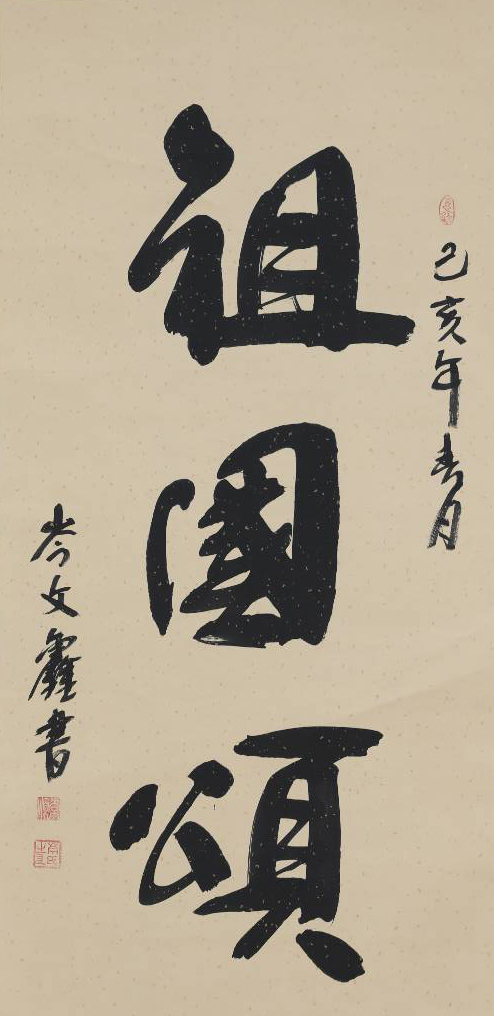 己亥年春月
祖國頌
岑文靃書